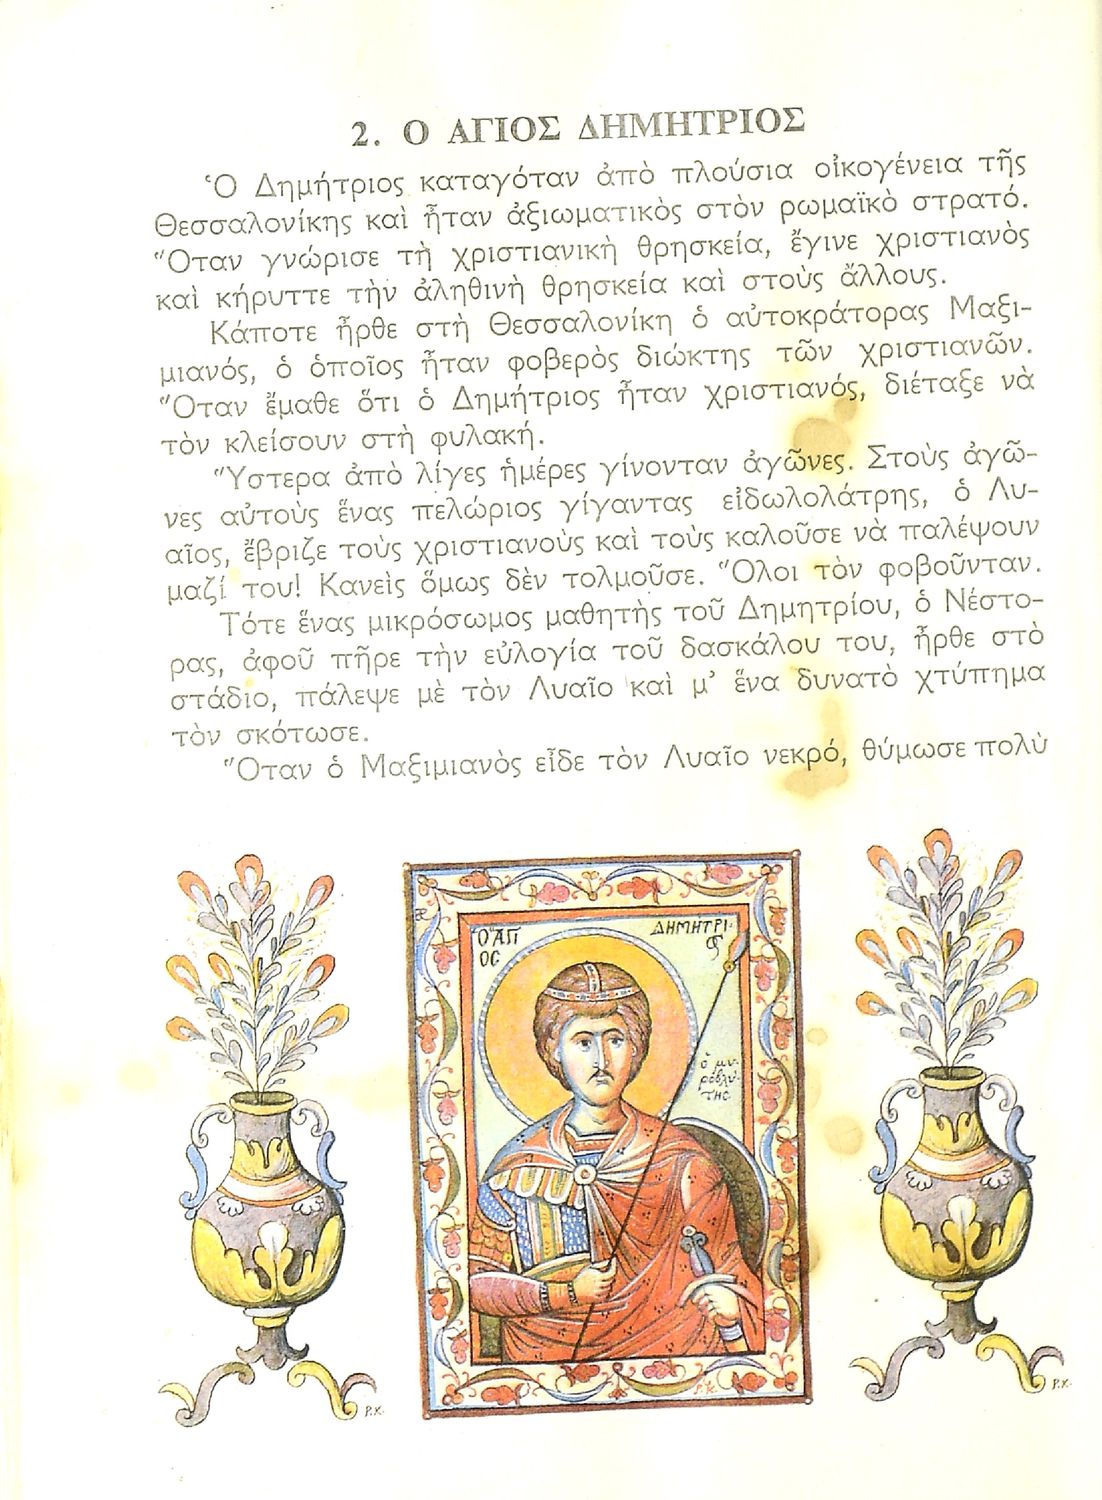 2. Ο ΑΓΙΟΣ ΔΗΜΗΤΡΙΟΣ
Ὁ Δημήτριος καταγόταν ἀπὸ πλούσια οἰκογένεια τῆς
Θεσσαλονίκης καὶ ἦταν ἀξιωματικὸς στὸν ρωμαϊκὸ στρατό.
Ὅταν γνώρισε τὴ χριστιανικὴ θρησκεία, ἔγινε χριστιανὸς
καὶ κήρυττε τὴν ἀληθινὴ θρησκεία καὶ στοὺς ἄλλους.
Κάποτε ἦρθε στὴ Θεσσαλονίκη ὁ αὐτοκράτορας Μαξι-
μιανός, ὁ ὁποῖος ἦταν φοβερὸς διώκτης τῶν χριστιανῶν.
Ὅταν ἔμαθε ὅτι ὁ Δημήτριος ἦταν χριστιανός, διέταξε νὰ
τὸν κλείσουν στὴ φυλακή.
Ὕστερα ἀπὸ λίγες ἡμέρες γίνονταν ἀγῶνες. Στοὺς ἀγῶ-
νες αὐτοὺς ἕνας πελώριος γίγαντας εἰδωλολάτρης, ὁ Λυ-
αῖος, ἔβριζε τοὺς χριστιανοὺς καὶ τοὺς καλοῦσε νὰ παλέψουν
μαζί του! Κανεὶς ὅμως δὲν τολμοῦσε. Ὅλοι τὸν φοβοῦνταν.
Τότε ἕνας μικρόσωμος μαθητὴς τοῦ Δημητρίου, ὁ Νέστο-
ρας, ἀφοῦ πῆρε τὴν εὐλογία τοῦ δασκάλου του, ἦρθε στὸ
στάδιο, πάλεψε μὲ τὸν Λυαῖο καὶ μ᾿ ἕνα δυνατὸ χτύπημα
τὸν σκότωσε.
Ὅταν ὁ Μαξιμιανὸς εἶδε τὸν Λυαῖο νεκρό, θύμωσε πολὺ
Ο ΑΓΙ
ΟΣ
ΔΗΜΗΤΡΙ
ΟΣ
ὁ μυ-
ροβλύ-
της
Ρ.Κ.
Ρ.Κ.
Ρ.Κ.